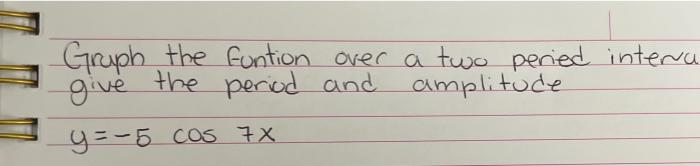 Graph the funtion over a two peried interva
give the period and amplitude
y=-5 cos 7x